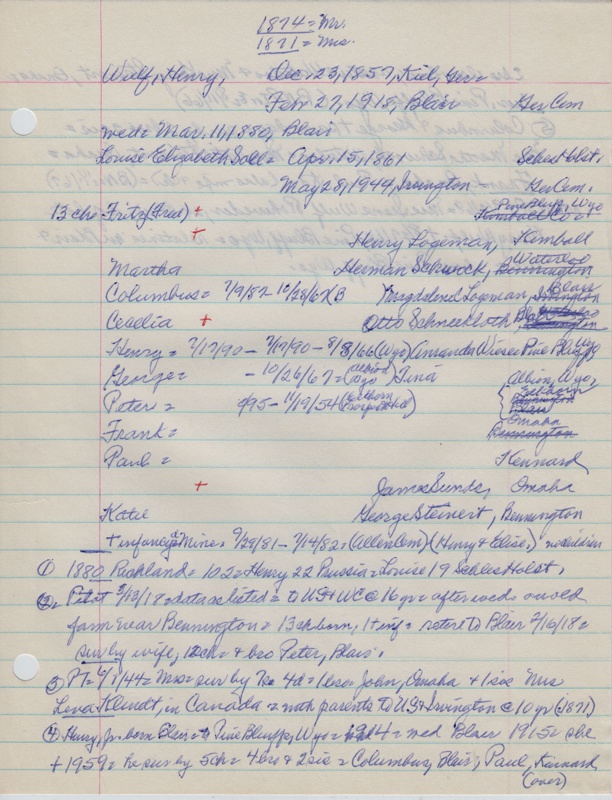 1874 = Mr.
1871 = Mrs.
Wulf, Henry, Dec. 23, 1857, Kiel, Ger =
Feb. 27, 1918, Blair Ger Cem
wed = Mar. 11, 1880, Blair
Louise Elizabeth Soll = Apr. 15, 1861 Schles Holst.
May 28, 1944, Irvington - Ger Cem.
13 ch = Fritz (Fred) + Pine Bluff, Wyo
+ Henry Logeman, Kimball
Martha Herman Schwick, Bennington Waterloo
Columbus = 7/9/82 - 10/28/67 B Magdelena Logeman, Irvington Blair
Cecelia + Otto Schneekloth, Blair
Henry = 7/17/90 - 7/17/90 - 8/8/66 (Wyo) Amanda Pine Bluff Wyo
George = - 10/26/67 = (Albion Wyo) Tina Albion, Wyo.
Peter = 495 - 11/19/54 (Elkhorn) Elkhorn Bennington Blair
Frank = Omaha Bennington
Paul = Kennard
+ James Sunds, Omaha
Katie George Steinert, Bennington
+ infancy = Mine = 9/29/81 - 7/14/82 = (Allen Cem) (Henry & Elise)
① 1880 Richland = 102 = Henry 22 Prussia = Louise 19 Schles Holst.
②= Pilot 3/13/18 = data as listed = to US & WC @ 16 yr = after wed on old
farm near Bennington = 13 ch born, 1 + inf = retire to Blair 2/16/18 =
sur by wife, 12 ch = & bro Peter, Blair.
③ PT = 6/1/44 = Mrs = sur by 7s 4d = 1 bro John, Omaha & 1 sis Mrs
Lena Klindt, in Canada = with parents to US & Irvington @ 10 yr (1871)
④ Henry, Jr = born Blair = to Pine Bluffs, Wyo = 1914 = wed Blair 1915 = she
+ 1959 = he sur by 5 ch = 4 bro & 2 sis = Columbus, Blair; Paul, Kennard
(over)